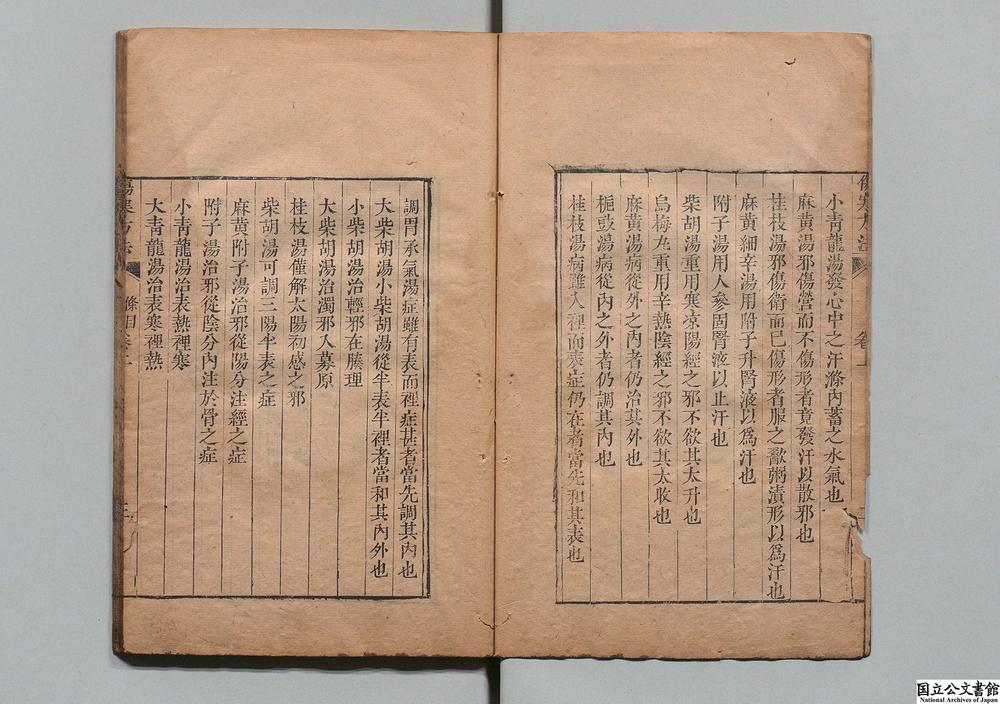 小青龍湯發心中之汗滌內蓄之水氣也
麻黃湯邪傷營而不傷形者竟發汗以散邪也
桂枝湯邪傷衛而已傷形者服之歠粥漬形以爲汗也
麻黃細辛湯用附子升腎液以爲汗也
附子湯用人參固腎液以止汗也
柴胡湯重用寒凉陽經之邪不欲其太升也
烏梅丸重用辛熱陰經之邪不欲其太收也
麻黃湯病從外之內者仍治其外也
梔豉湯病從內之外者仍調其內也
桂枝湯病雖入裡而表症仍在者當先和其表也
調胃承氣湯症雖有表而裡症甚者當先調其內也
大柴胡湯小柴胡湯從半表半裡者當和其內外也
小柴胡湯治輕邪在腠理
大柴胡湯治濁邪入募原
桂枝湯僅解太陽初感之邪
柴胡湯可調三陽半表之症
麻黃附子湯治邪從陽分注經之症
附子湯治邪從陰分內注於骨之症
小靑龍湯治表熱裡寒
大靑龍湯治表寒裡熱
傷寒方法
條目
国立公文書館
National Archives of Japan